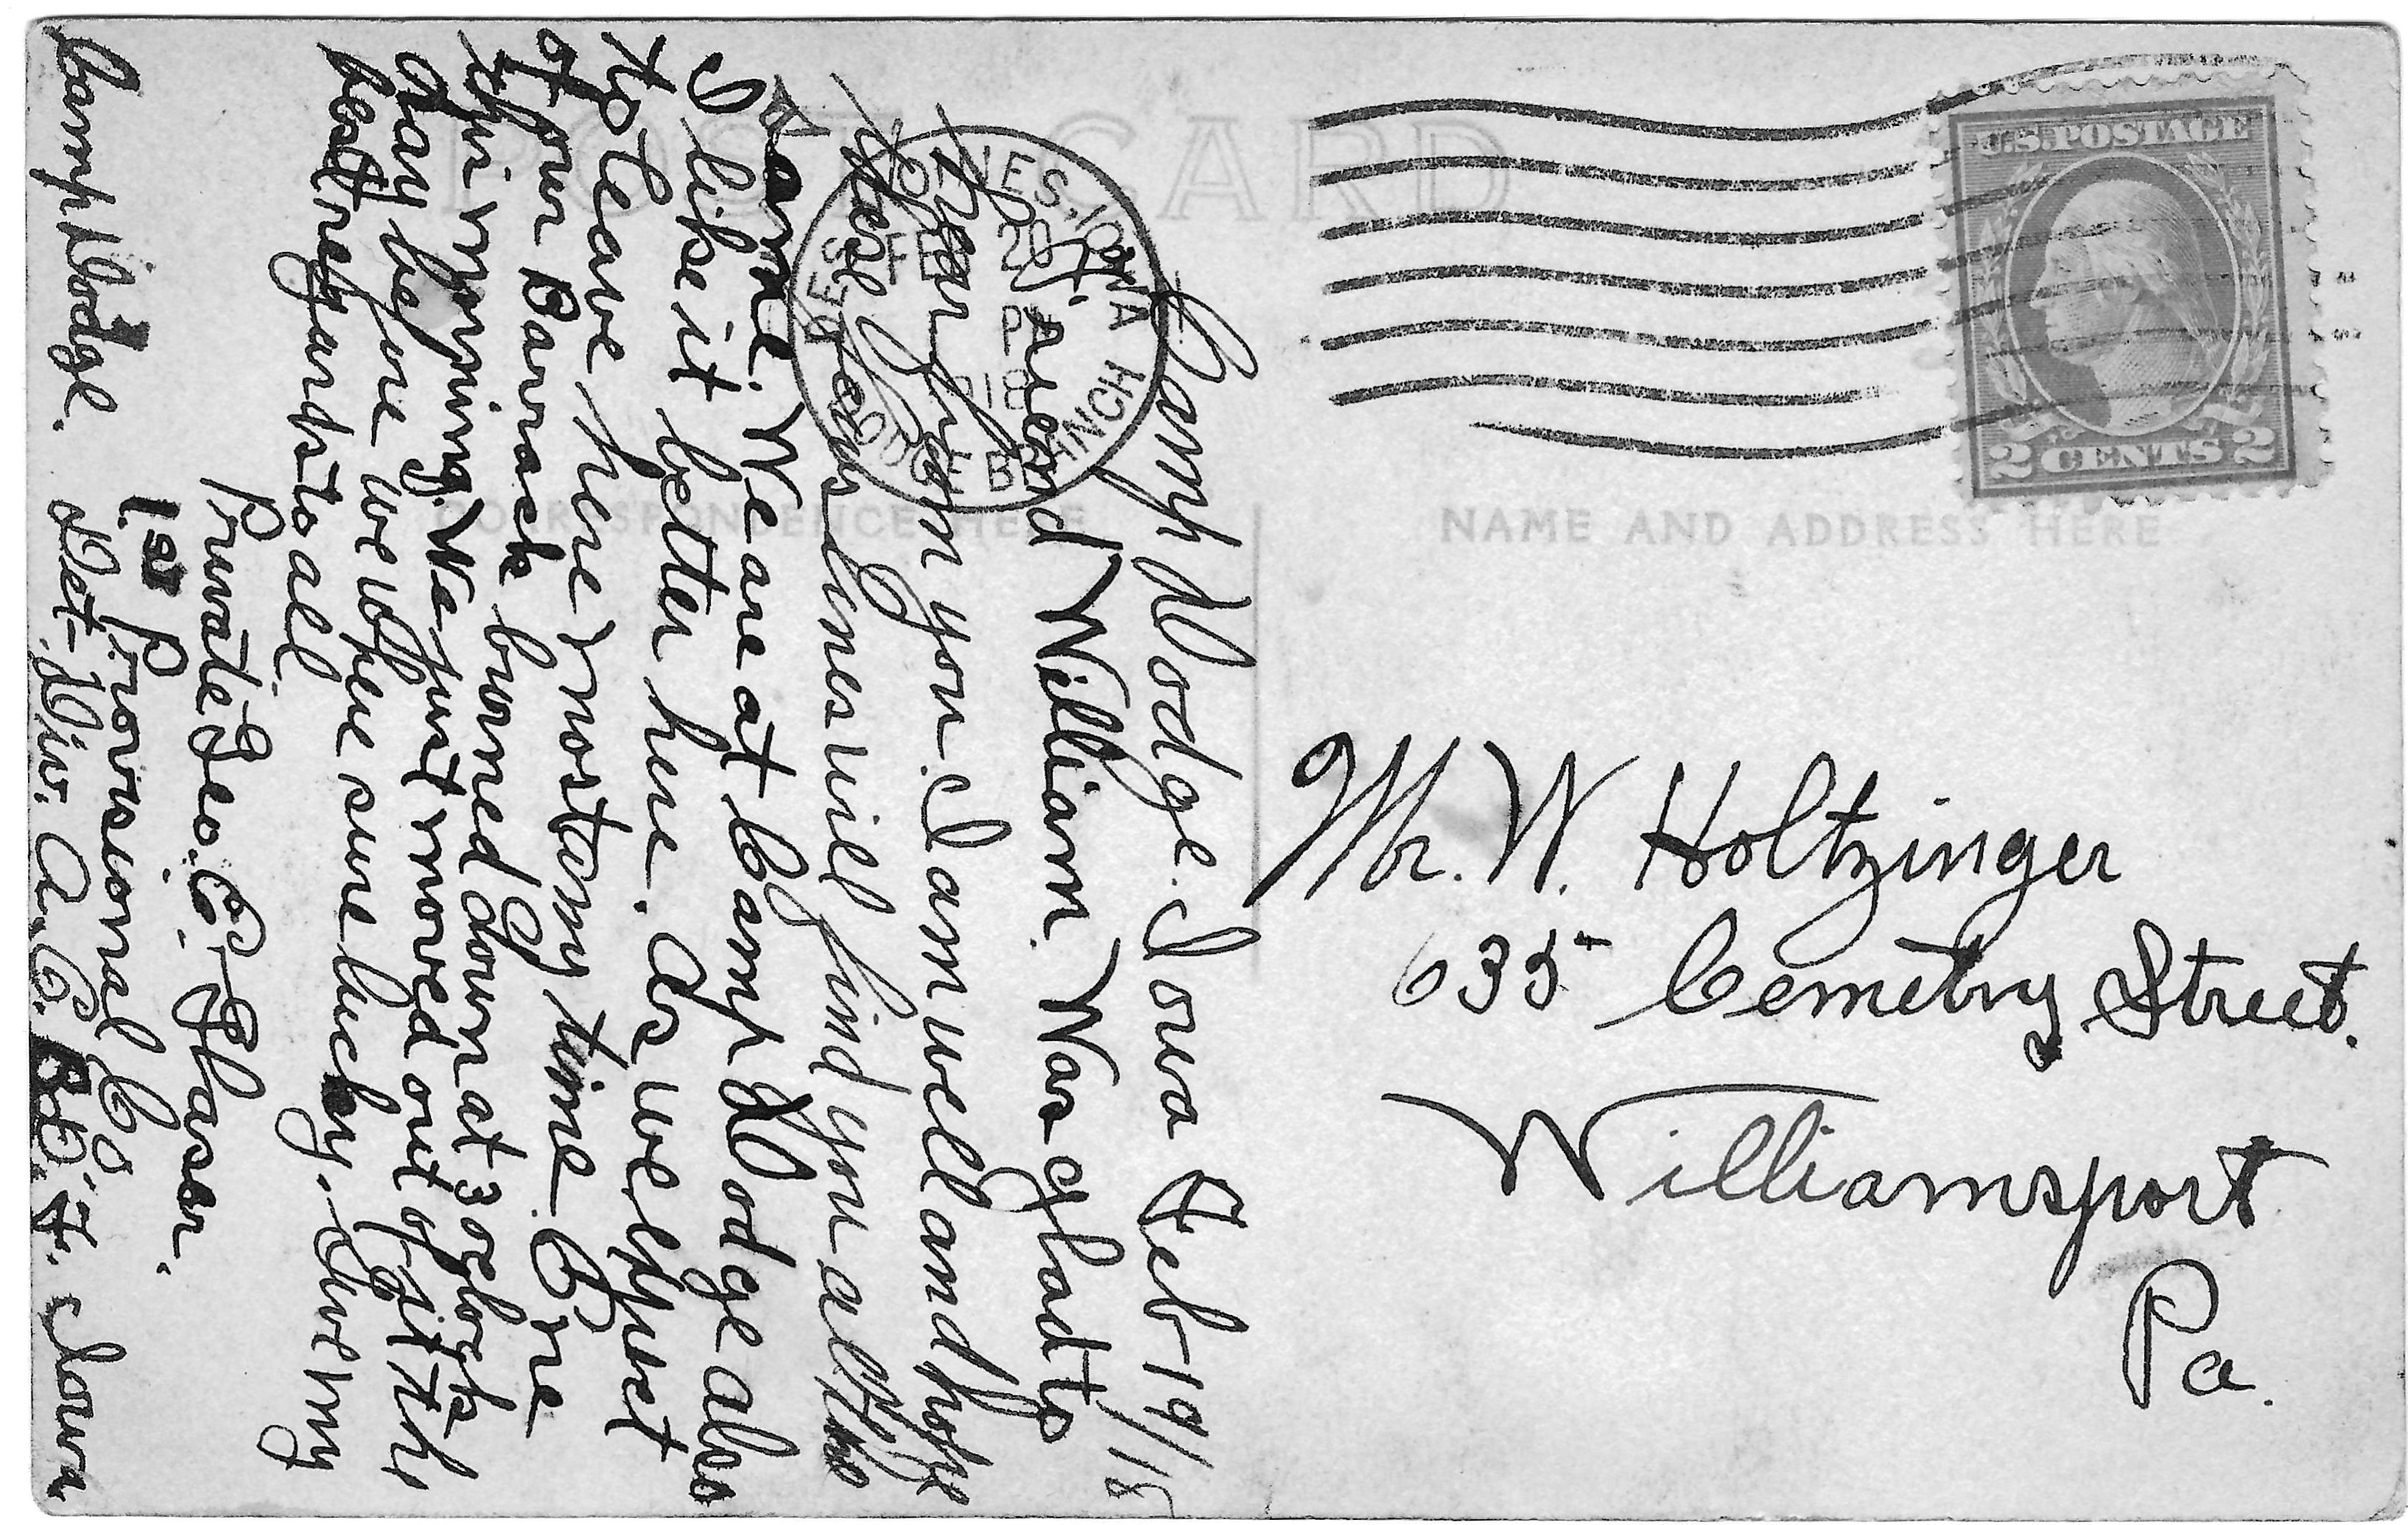 POST CARD
CORRESPONDENCE HERE
NAME AND ADDRESS HERE
U.S. POSTAGE
2 CENTS 2
DES MOINES, IOWA
FEB 20
PM
1918
DODGE BRANCH
Camp Dodge. Iowa Feb 19/18
Friend William. Was glad to
hear from you. I am well and hope
these few lines will find you all the
same. We are at Camp Dodge also
I like it better here. As we expect
to leave here most any time. One
of our Barrask borned down at 3 oclock
this morning. We just moved out of it the
day before we where sure lucky. Give my
best regards to all
Private Geo. C. Glaser.
1st Provisional Co.
Camp Dodge. Det. Div. A. C. Bd. F. Iowa
Mr. W. Holtzinger
635 Cemetry Street.
Williamsport
Pa.